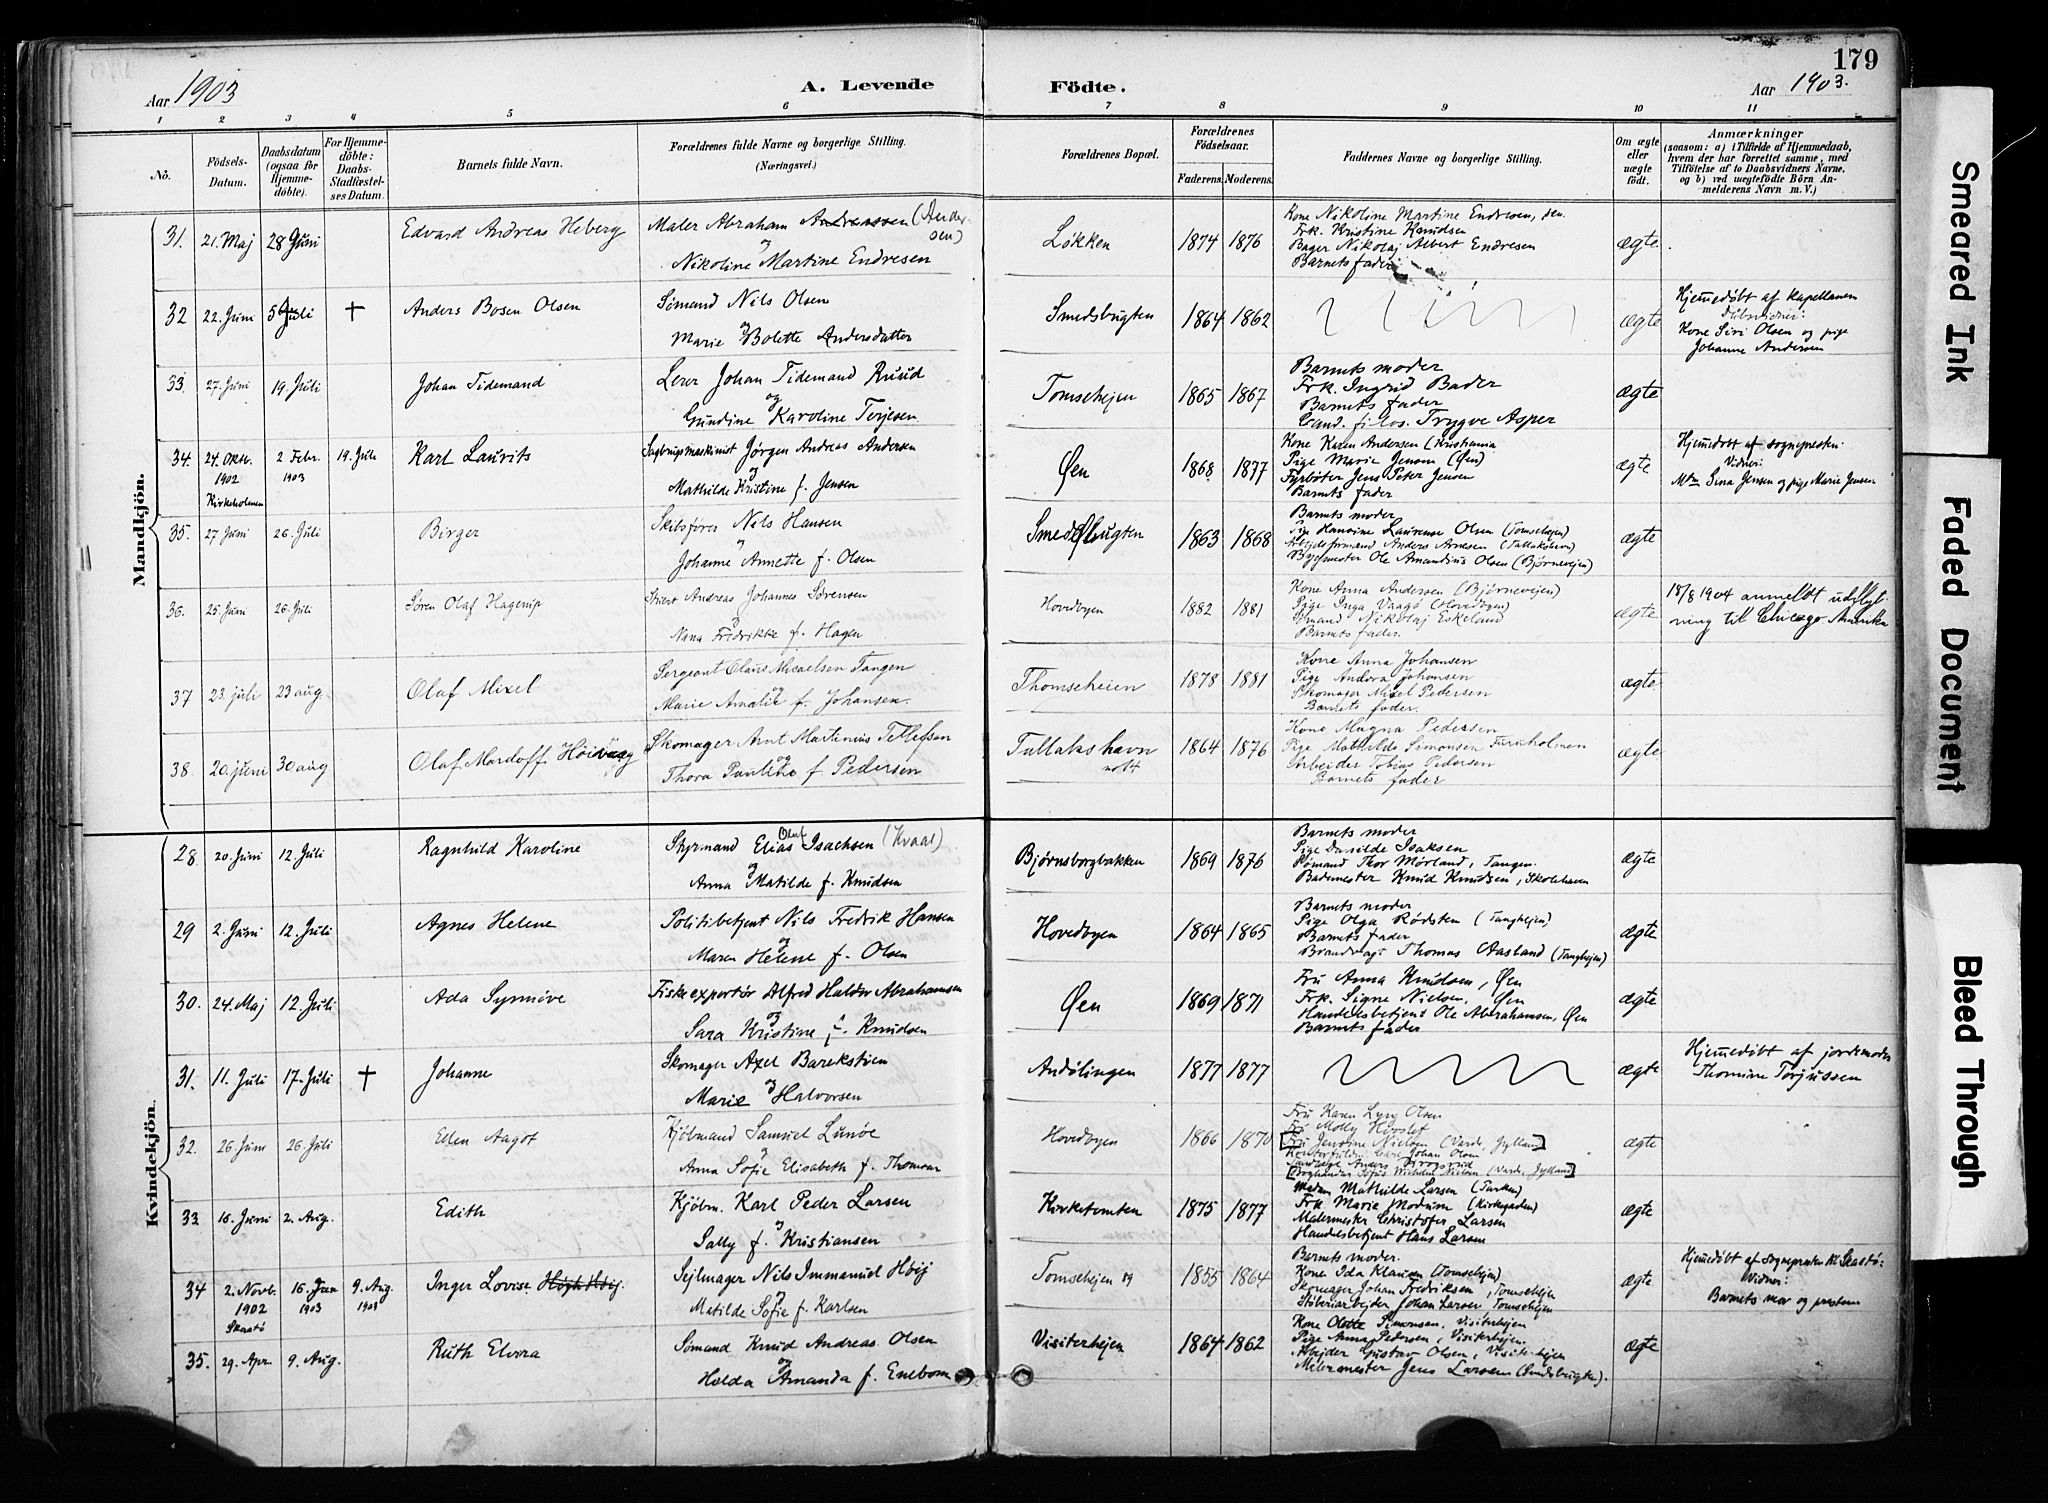 179
Aar 1903
A. Levende
Födte.
Aar 1903.
1 2 3 4 5 6 7 8 9 10 11
No.
Födsels-Datum.
Daabsdatum (ogsaa for Hjemmedöbte).
For Hjemmedöbte: Daabs-Stadfæstelses Datum.
Barnets fulde Navn.
Forældrenes fulde Navne og borgerlige Stilling.
(Næringsvei.)
Forældrenes Bopæl.
Forældrenes Födselsaar.
Faderens. Moderens.
Faddernes Navne og borgerlige Stilling.
Om ægte eller uægte födt.
Anmærkninger
(saasom: a) i Tilfælde af Hjemmedaab, hvem der har forrettet samme, med Tilföielse af to Daabsvidners Navne, og b) ved uægtefödte Börn Anmelderens Navn m. V.)
Mandkjön.
31. 21. Maj 28 Juni Edvard Andreas Heberg
Maler Abraham Andreassen (Andersen)
og
Nikoline Martine Endresen
Løkken 1874 1876
Kone Nikoline Martine Endresen, sen.
Frk. Kristine Knudsen
Bager Nikolaj Albert Endresen
Barnets fader
ægte.
32 22. Juni 5 Juli + Anders Bosen Olsen
Sømand Nils Olsen
og
Marie Bolette Andersdatter
Smedsbugten 1864 1862
ægte
Hjemmedøbt af Kapellanen
Kone Siri Olsen og pige
Johanne Andersen
33. 27. Juni 19. Juli Johan Tidemand
Lærer Johan Tidemand Ruud
og
Gundine Karoline Terjesen
Tomsehejen 1865 1867
Barnets moder
Frk. Ingrid Bader
Barnets fader
Cand. filos. Trygve Asper
ægte
34. 24. Okt. 1902 Kirkeholmen 2 Febr. 1903 19. Juli Karl Laurits
Sagbrugsmaskinist Jørgen Andreas Andersen
og
Mathilde Kristine f. Jensen
Øen 1868 1877
Kone Karen Andersen (Kristiania
Pige Marie Jensen (Øen)
Fyrbøter Jens Peter Jensen
Barnets fader
ægte
Hjemmedøbt af sognepresten.
Vidner:
Gina Jensen og pige Marie Jensen
35. 27 Juni 26. Juli Birger
Skibsfører Nils Hansen
og
Johanne Annette f. Olsen
Smedsbugten 1863 1868
Barnets moder
Pige Hansine Laurense Olsen (Tomsehejen)
Anders Arnesen (Tallakshavn)
Bygmester Ole Amandius Olsen (Bjørnevejen)
ægte
36. 25. Juni 26. Juli Søren Olaf Hagerup
Andreas Johannes Sørensen
og
Nana Fredrikke f. Hagen
Hovedbyen 1882 1881
Kone Anna Andersen (Bjørnevejen)
Pige Inga Vaagø (Hovedbyen)
Sømand Nikolaj Eskeland
Barnets fader.
ægte
18/8 1904 anmeldt udflyt-
ning til Chicago. Amerika
37 23. juli 23 aug Olaf Mixel
Sergeant Olaus Micaelsen Tangen
og
Marie Amalie f. Johansen.
Thomseheien 1878 1881
Kone Anna Johansen
Pige Andora Johansen
Skomager Mixel Pedersen
Barnets fader.
ægte
38. 20. juni 30 aug Olaf Mardoff Høivaag
Skomager Arnt Martinius Tellefsen
og
Thora Pauline f Pedersen
Tallakshavn 1864 1876
Kone Magna Pedersen
Pige Mathilde Simonsen Furuholmen
Arbeider Tobias Pedersen
Barnets fader
ægte
Kvindekjön.
28. 20. Juni 12. Juli Ragnhild Karoline
Styrmand Elias Olaf Isachsen (Kvaal)
og
Anna Matilde f. Knudsen
Bjørnsborgbakken 1869 1876
Barnets moder
Pige Danilde Isaksen
Sømand Thor Mørland, Tangen.
Bademester Knud Knudsen, Skolehaven
ægte
29 2. Juni 12. Juli Agnes Helene
Politibetjent Nils Fredrik Hansen
og
Maren Helene f. Olsen
Hovedbyen 1864 1865
Barnets moder
Pige Olga Rødsten (Tanghejen)
Barnets fader
Brandvagt Thomas Aasland (Tanghejen)
ægte
30. 24. Maj 12. Juli Ada Synnöve
Fiskeexportør Alfred Halder Abrahamsen
og
Sara Kristine f. Knudsen
Øen 1869 1871
Fru Anna Knudsen, Øen
Frk. Signe Nielsen, Øen
Handelsbetjent Ole Abrahamsen, Øen
Barnets fader
ægte
31. 11. Juli 17. Juli + Johanne
Skomager Axel Barekstien
og
Marie Halvorsen
Andølingen 1877 1877
ægte
Hjemmedøbt af jordemoder
Thomine Torjussen
32. 26. Juni 26. Juli Ellen Aagot
Kjøbmand Samuel Lunöe
og
Anna Sofie Elisabeth f. Thomsen
Hovedbyen 1866 1870
Fru Karen Lyng Olsen
Fru Molly Hovslef
[Fru Jensine Nielsen (Varde, Jylland)]
Johan Olsen
Nielsen (Varde, Jylland)]
ægte
33 16. Juni 2. Aug. Edith
Kjöbm. Karl Peder Larsen
og
Sally f. Kristiansen
Kirketomten 1875 1877
Madam Mathilde Larsen
Frk Marie Modum (Kirkegaden)
Malermester Christofer Larsen
Handelsbetjent Hans Larsen
ægte
34 2. Novb. 1902 Skaatø 16. Jan 1903 9. Aug. 1903 Inger Lovise Høgh Høij.
Sejlmager Nils Immanuel Høij
og
Matilde Sofie f. Karlsen
Tomsehejen 29 1855 1864
Barnets moder.
Kone Ida Klausen (Tomsehejen)
Skomager Johan Fredriksen, Tomsehejen
Støberiarbejder Johan Larsen Tomsehejen
ægte
Hjemmedøbt af sognepresten til Skaatø:
Vidner:
Barnets mor og presten
35. 29. Apr. 9. Aug. Ruth Elvira
Sømand Knud Andreas Olsen
og
Holda Amanda f. Enebom
Visiterhejen 1864 1862
Kone Olette Simonsen, Visiterhejen
Pige Anna Pedersen, Visiterhejen.
Arbejder Gustav Olsen, Visiterhejen
Malermester Jens Larsen (Smedsbugten).
ægte
Smeared Ink
Faded Document
Bleed Through